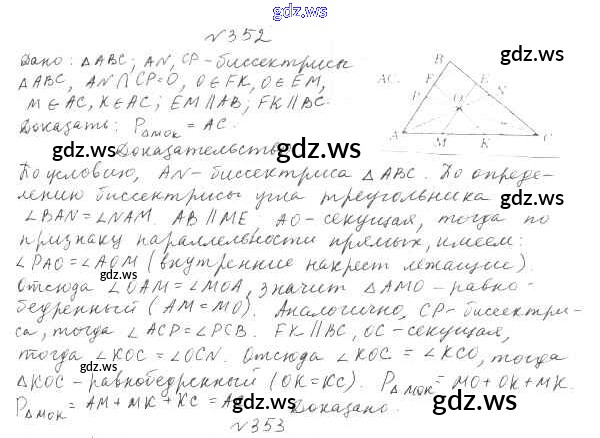 gdz.ws
№352
gdz.ws
Дано: △ABC; AN, CP - биссектрисы
△ABC, AN∩CP=O, O∈FK, O∈EM,
M∈AC, K∈AC; EM∥AB; FK∥BC.
AC.
B
F
E
P
O
N
A
M
K
C
Доказать: P△MOK = AC.
Доказательство
gdz.ws
gdz.ws
По условию, AN - биссектриса △ABC. По опреде-
лению биссектрисы угла треугольника
∠BAN = ∠NAM. AB∥ME. AO - секущая, тогда по
признаку параллельности прямых, имеем:
∠PAO = ∠AOM (внутренние накрест лежащие).
gdz.ws
gdz.ws
Отсюда ∠OAM = ∠MOA, значит △AMO - равно-
бедренный (AM = MO). Аналогично, CP - биссектри-
са, тогда ∠ACP = ∠PCB. FK∥BC, OC - секущая,
тогда ∠KOC = ∠OCN. Отсюда ∠KOC = ∠KCO, тогда
gdz.ws
gdz.ws
△KOC - равнобедренный (OK = KC). P△MOK = MO + OK + MK.
P△MOK = AM + MK + KC = AC. Доказано.
gdz.ws
№353
gdz.ws